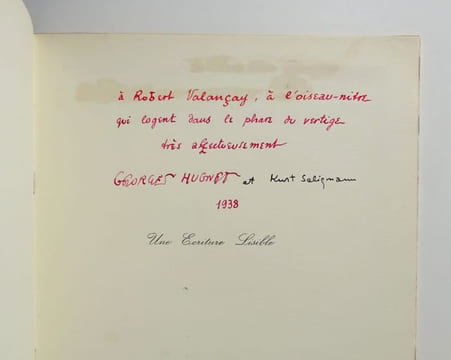 à Robert Valançay, à l'oiseau-nitre
qui logent dans le phare du vertige
très affectueusement
GEORGES HUGNET et Kurt Seligmann
1938
Une Ecriture Lisible